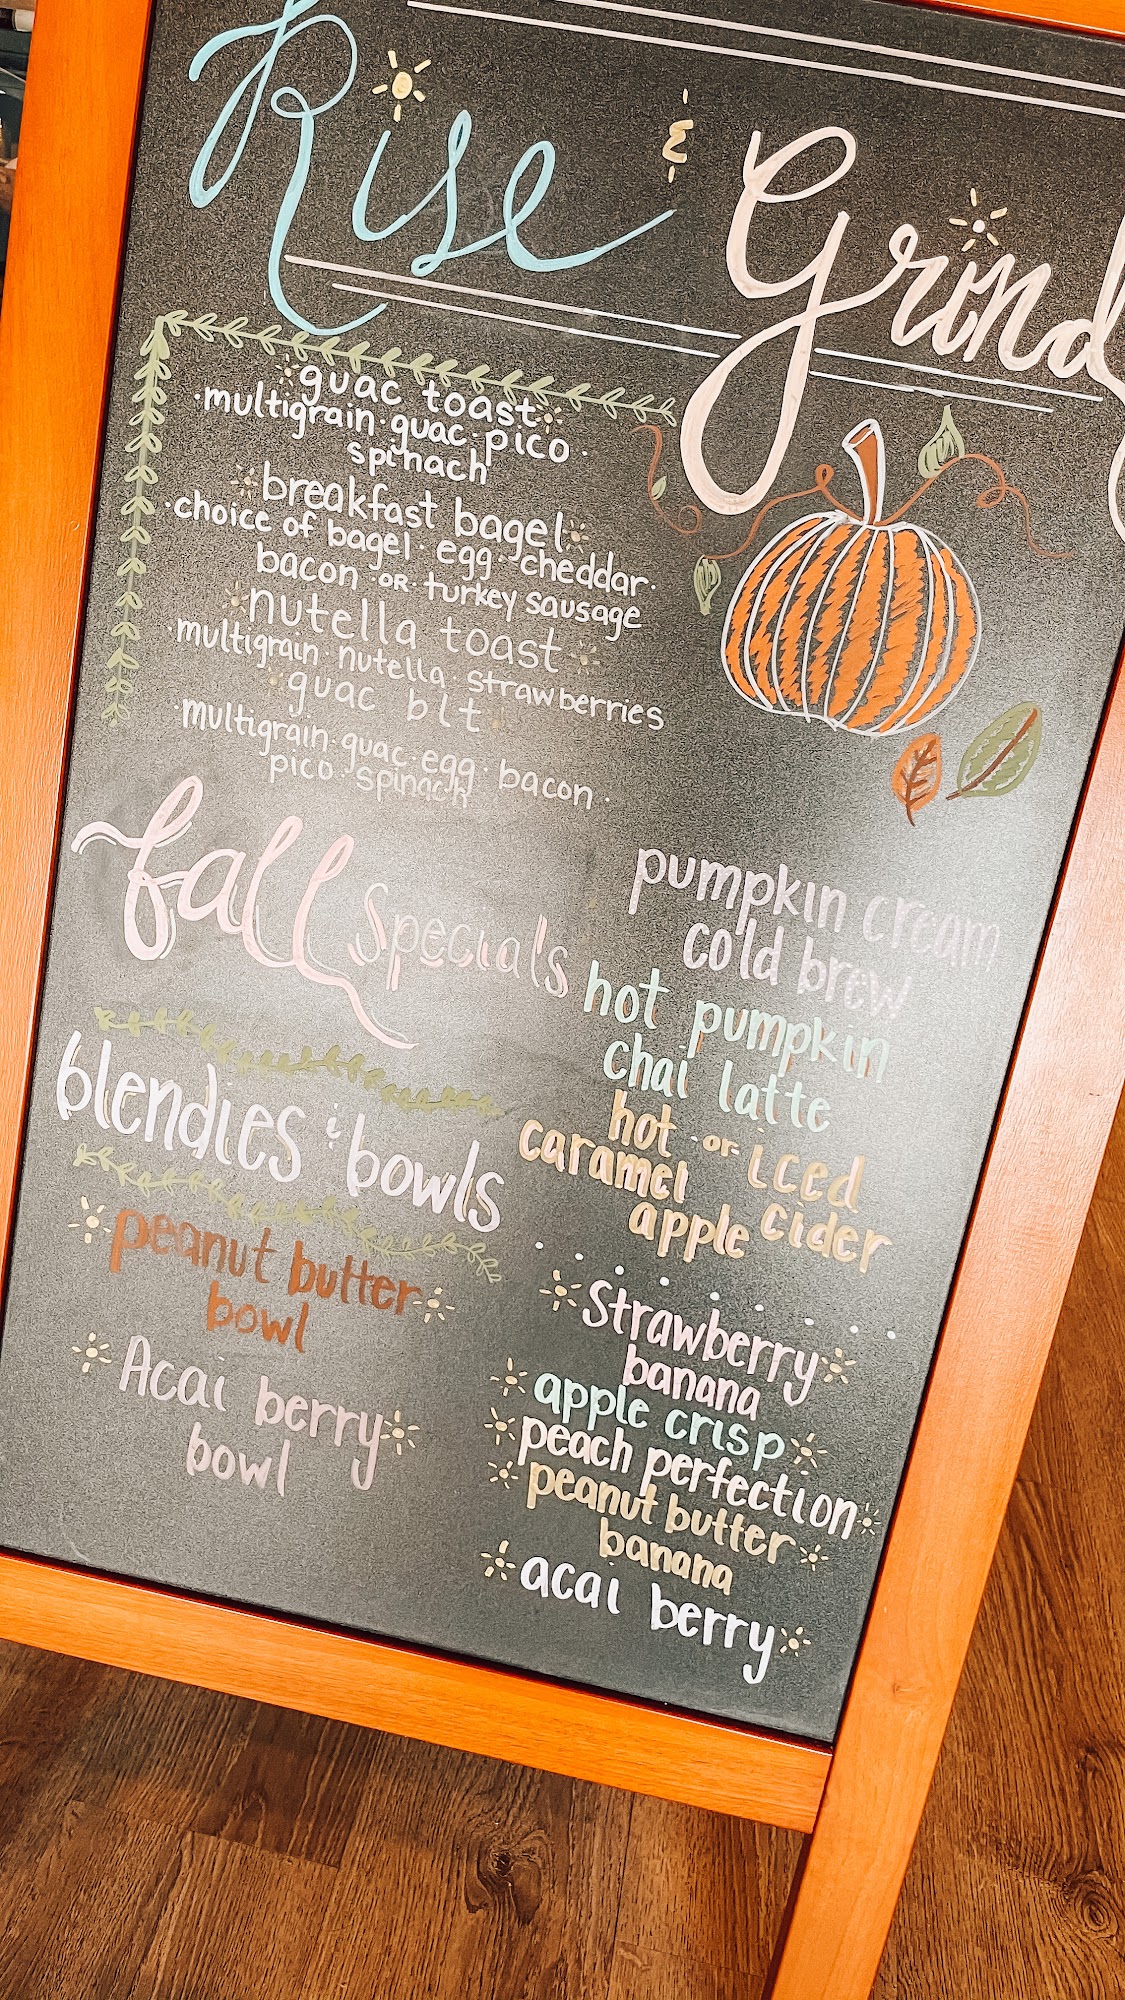 Rise & Grind
guac toast
·multigrain·guac·pico·
spinach
breakfast bagel
·choice of bagel·egg·cheddar·
bacon·or·turkey sausage
nutella toast
·multigrain·nutella·strawberries
guac blt
·multigrain·guac·egg·bacon·
pico·spinach
fall Specials
pumpkin cream
cold brew
hot pumpkin
chai latte
hot·or·iced
caramel
apple cider
blendies & bowls
peanut butter
bowl
Acai berry
bowl
Strawberry
banana
apple crisp
peach perfection
peanut butter
banana
acai berry